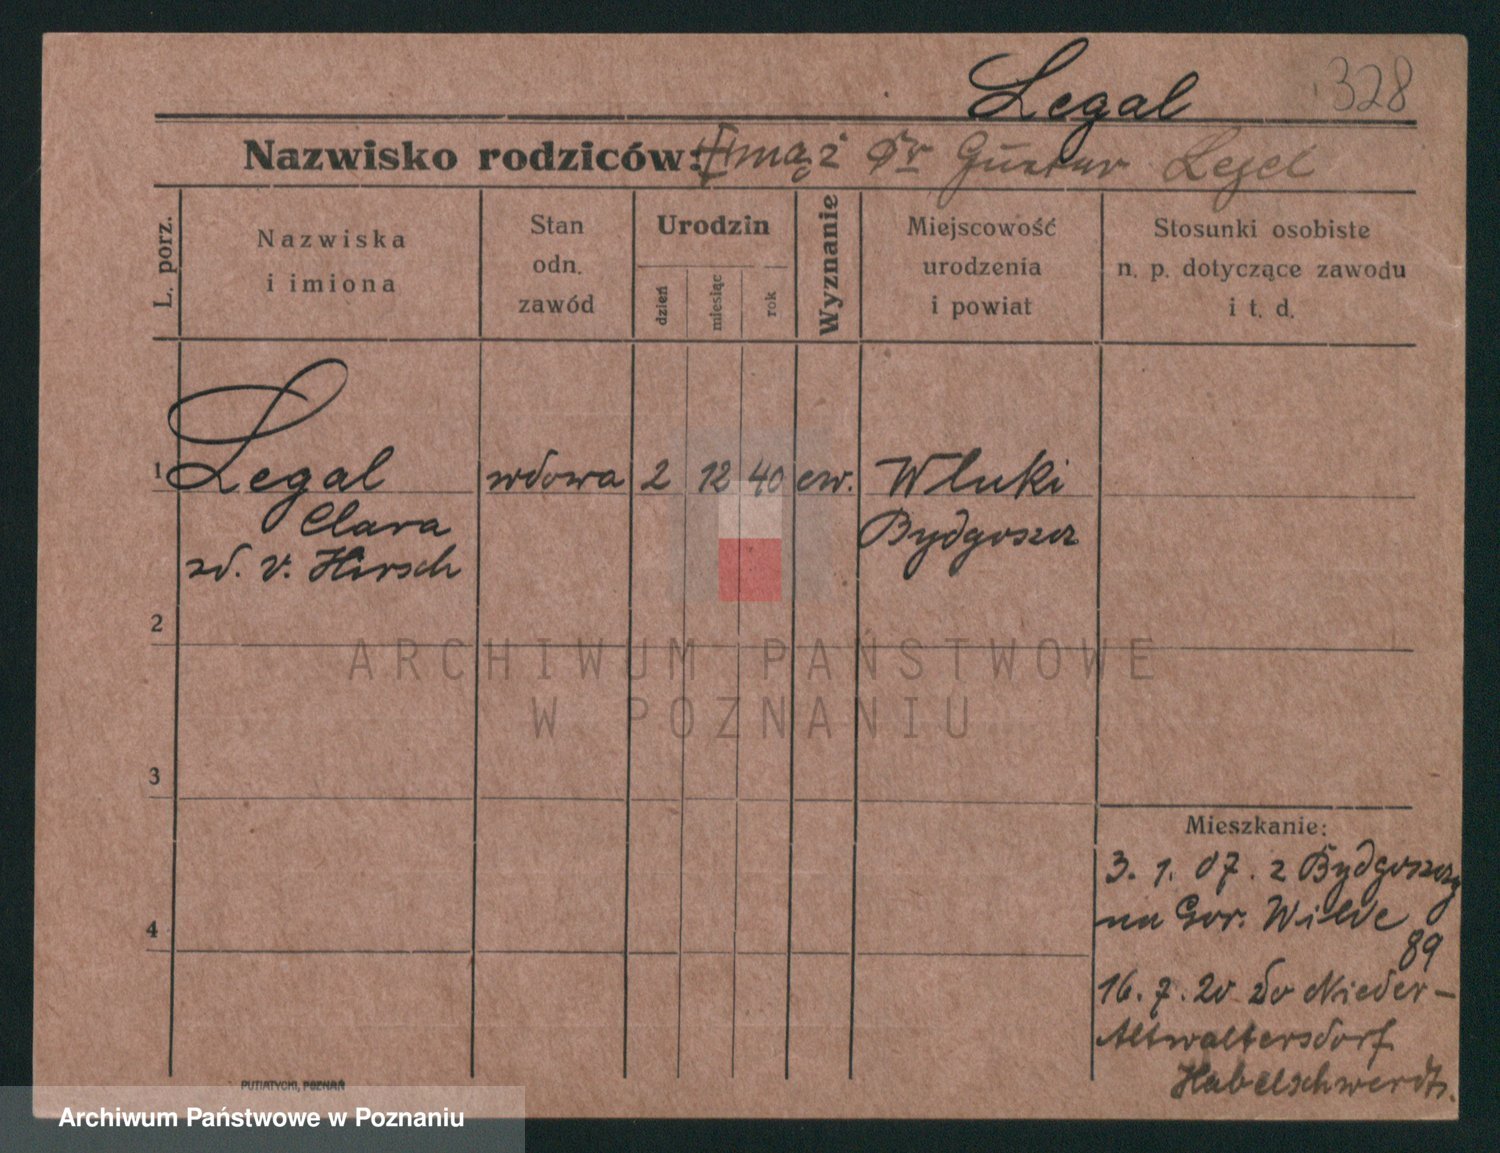 Legal 328
Nazwisko rodziców: mąż Dr Gustav Legal
L. porz.
Nazwiska
i imiona
Stan
odn.
zawód
Urodzin
dzień
miesiąc
rok
Wyznanie
Miejscowość
urodzenia
i powiat
Stosunki osobiste
n. p. dotyczące zawodu
i t. d.
1 Legal wdowa 2 12 40 ew. Wluki
Clara Bydgoszcz
zd. v. Hirsch
2
3
4
Mieszkanie:
3. 1. 07. z Bydgoszczy
na Gor. Wilde
89
16. 7. 20 do Nieder-
Altwaltersdorf
Habelschwerdt.
PUTIATYCKI, POZNAŃ
ARCHIWUM PAŃSTWOWE
W POZNANIU
Archiwum Państwowe w Poznaniu